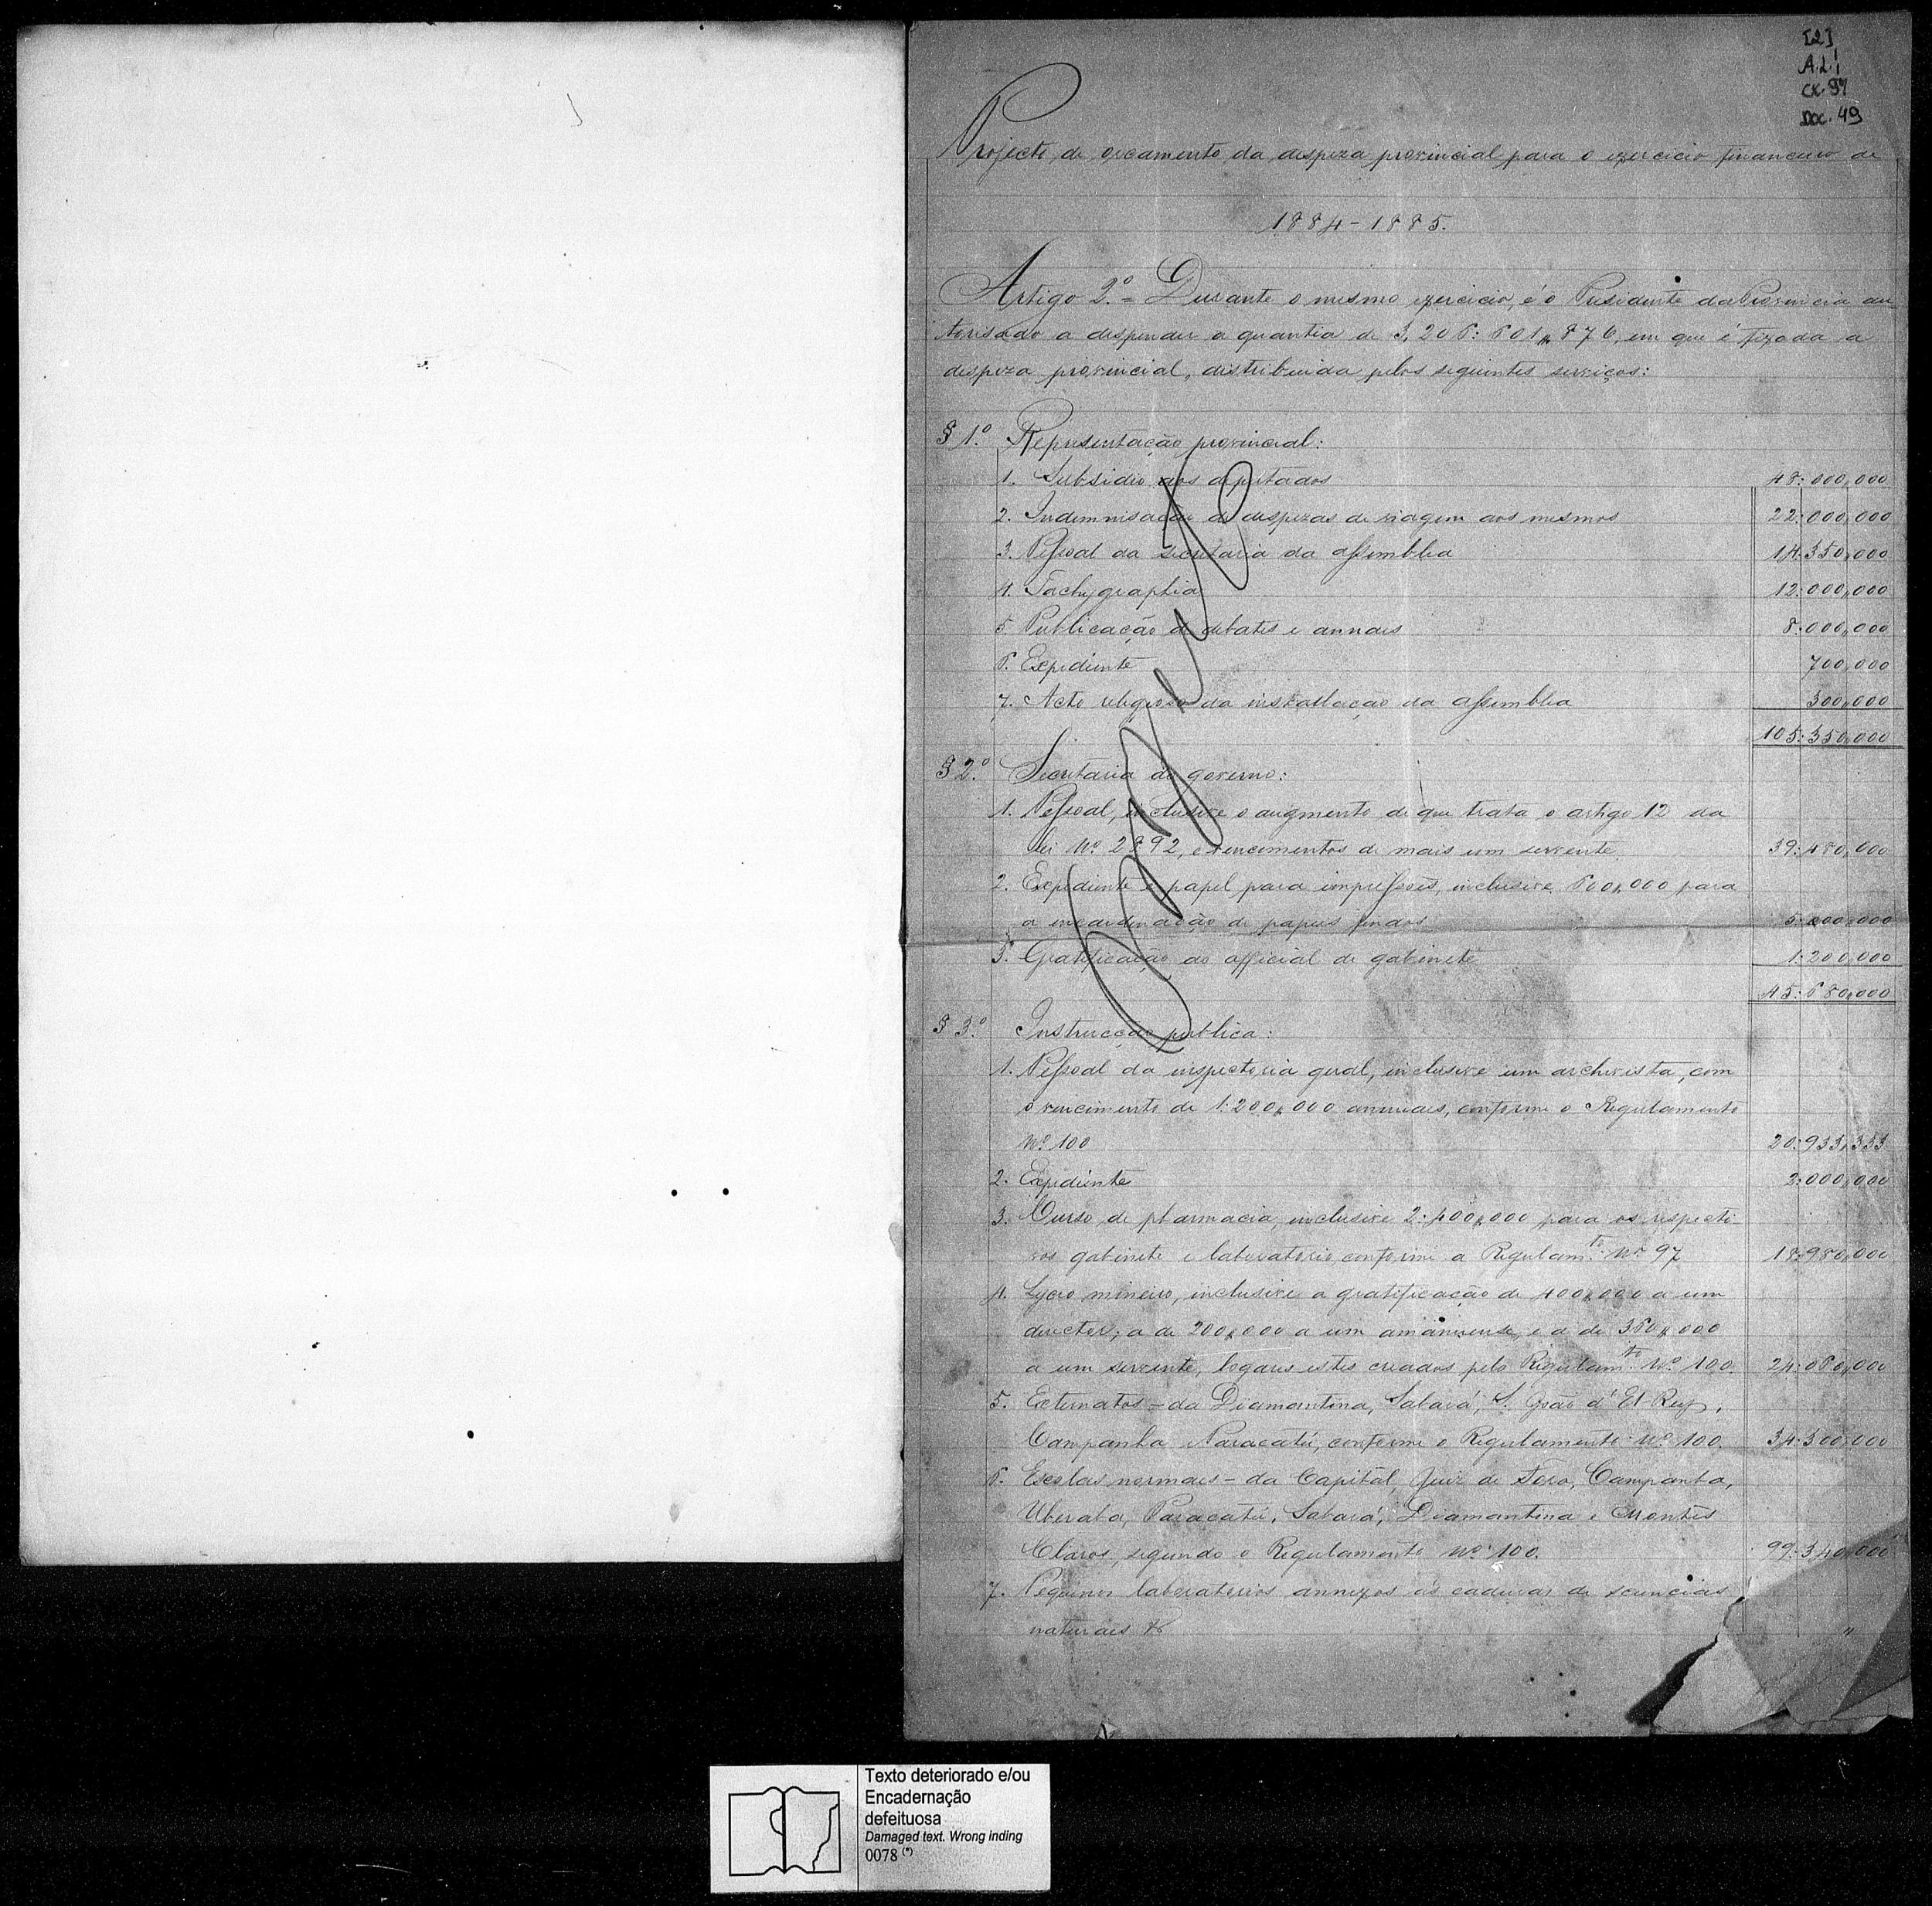 [2]
A.L.1
CX. 97
DOC. 49
Projecto de orcamento da despeza provincial para o exercicio financeiro de
1884-1885.
Artigo 2.º = Durante o mesmo exercicio, é o Presidente da Provincia au
torisado a despender a quantia de 3,206:601$876, em que é fixada a
despeza provincial, distribuida pelos seguintes serviços:
§ 1.º Representação provincial:
1. Subsidio aos deputados 48:000,000
2. Indemnisação de despezas de viagem aos mesmos 22:000,000
3. Pessoal da secretaria da assemblea 14:350,000
4. Tachygraphia 12:000,000
5. Publicação de debates e annaes 8:000,000
6. Expediente 700,000
7. Acto religioso da installação da assemblea 300,000
105:350,000
§ 2.º Secretaria do governo:
1. Pessoal, inclusive o augmento de que trata o artigo 12 da
lei Nº 2892, e vencimentos de mais um servente. 39:480,000
2. Expediente e papel para impressões, inclusive 600$000 para
a encadernação de papeis findos 5:000,000
3. Gratificação ao official de gabinete 1:200,000
45:680,000
§ 3.º Instrucção publica:
1. Pessoal da inspectoria geral, inclusive um archivista, com
o vencimento de 1:200$000 annuaes, conforme o Regulamento
Nº 100 20:933,333
2. Expediente 2:000,000
3. Curso de pharmacia, inclusive 2:400$000 para os respecti
vos gabinete e laboratorio conforme a Regulam.to Nº 97 18:980,000
4. Lyceo mineiro, inclusive a gratificação de 400$000 a um
director; a de 200$000 a um amanuense, e a de 360$000
a um servente, logares estes creados pelo Regulam.to Nº 100. 24:060,000
5. Externatos - da Diamantina, Sabará, S. João d'El-Rey,
Campanha e Paracatú, conforme o Regulamento Nº 100. 34:300,000
6. Escolas normaes - da Capital, Juiz de Fora, Campanha,
Uberaba, Paracatú, Sabará, Diamantina e Montes
Claros, segundo o Regulamento Nº 100. 99:340,000
7. Pequenos laboratorios annexos ás cadeiras de sciencias
naturaes &. "
Texto deteriorado e/ou
Encadernação
defeituosa
Damaged text. Wrong inding
0078 (*)